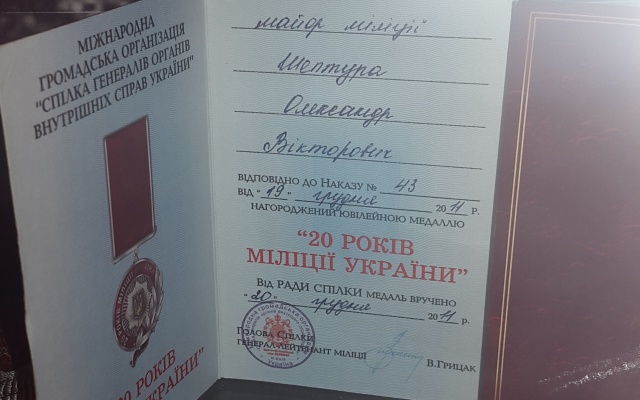 МІЖНАРОДНА
ГРОМАДСЬКА ОРГАНІЗАЦІЯ
"СПІЛКА ГЕНЕРАЛІВ ОРГАНІВ
ВНУТРІШНІХ СПРАВ УКРАЇНИ"
20 РОКІВ
УКРАЇНИ"
майор міліції
Шептура
Олександр
Вікторович
ВІДПОВІДНО ДО НАКАЗУ № 43
ВІД "19" грудня 2011 р.
НАГОРОДЖЕНИЙ ЮВІЛЕЙНОЮ МЕДАЛЛЮ
"20 РОКІВ
МІЛІЦІЇ УКРАЇНИ"
ВІД РАДИ СПІЛКИ МЕДАЛЬ ВРУЧЕНО
"20" грудня 2011 р.
ГОЛОВА СПІЛКИ
ГЕНЕРАЛ-ЛЕЙТЕНАНТ МІЛІЦІЇ В.ГРИЦАК